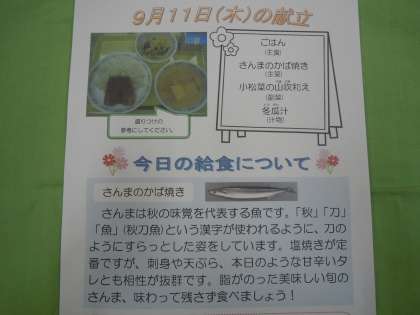 9月11日(木)の献立
ごはん
(主食)
さんまのかば焼き
(主菜)
小松菜の山吹和え
(副菜)
冬瓜汁
(汁物)
盛りつけの
参考にしてください。
今日の給食について
さんまのかば焼き
さんまは秋の味覚を代表する魚です。「秋」「刀」
「魚」(秋刀魚)という漢字が使われるように、刀の
ようにすらっとした姿をしています。塩焼きが定
番ですが、刺身や天ぷら、本日のような甘辛いタ
レとも相性が抜群です。脂がのった美味しい旬の
さんま、味わって残さず食べましょう!